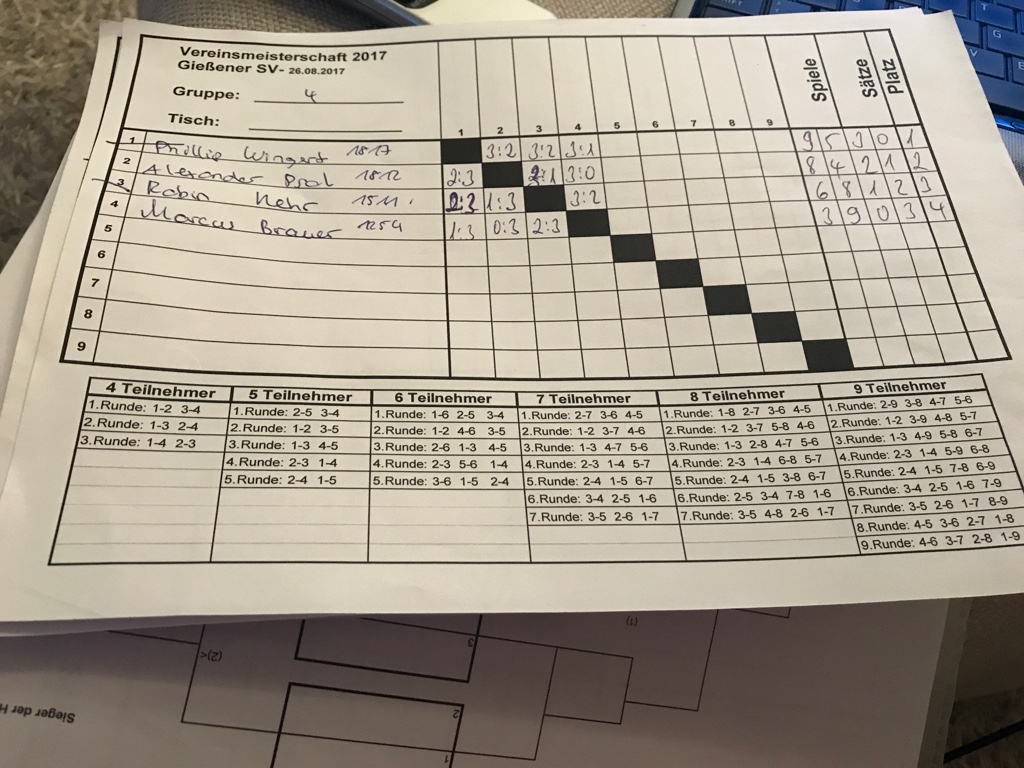 Vereinsmeisterschaft 2017
Gießener SV- 26.08.2017
Gruppe: 4
Tisch:
1 2 3 4 5 6 7 8 9 Spiele Sätze Platz
1 Phillip Wingert 1817 3:2 3:2 3:1 9 5 3 0 1
2 Alexander 1812 2:3 3:0 8 4 2 1 2
3 Robin Nehr 1511 2:3 1:3 3:2 6 8 1 2 3
4 Marcus Brauer 1254 1:3 0:3 2:3 3 9 0 3 4
5
6
7
8
9
4 Teilnehmer
1.Runde: 1-2 3-4
2.Runde: 1-3 2-4
3.Runde: 1-4 2-3
5 Teilnehmer
1.Runde: 2-5 3-4
2.Runde: 1-2 3-5
3.Runde: 1-3 4-5
4.Runde: 2-3 1-4
5.Runde: 2-4 1-5
6 Teilnehmer
1.Runde: 1-6 2-5 3-4
2.Runde: 1-2 4-6 3-5
3.Runde: 2-6 1-3 4-5
4.Runde: 2-3 5-6 1-4
5.Runde: 3-6 1-5 2-4
7 Teilnehmer
1.Runde: 2-7 3-6 4-5
2.Runde: 1-2 3-7 4-6
3.Runde: 1-3 4-7 5-6
4.Runde: 2-3 1-4 5-7
5.Runde: 2-4 1-5 6-7
6.Runde: 3-4 2-5 1-6
7.Runde: 3-5 2-6 1-7
8 Teilnehmer
1.Runde: 1-8 2-7 3-6 4-5
2.Runde: 1-2 3-7 5-8 4-6
3.Runde: 1-3 2-8 4-7 5-6
4.Runde: 2-3 1-4 6-8 5-7
5.Runde: 2-4 1-5 3-8 6-7
6.Runde: 2-5 3-4 7-8 1-6
7.Runde: 3-5 4-8 2-6 1-7
9 Teilnehmer
1.Runde: 2-9 3-8 4-7 5-6
2.Runde: 1-2 3-9 4-8 5-7
3.Runde: 1-3 4-9 5-8 6-7
4.Runde: 2-3 1-4 5-9 6-8
5.Runde: 2-4 1-5 7-8 6-9
6.Runde: 3-4 2-5 1-6 7-9
7.Runde: 3-5 2-6 1-7 8-9
8.Runde: 4-5 3-6 2-7 1-8
9.Runde: 4-6 3-7 2-8 1-9
(1)
3
(2)<
2
Sieger der H
1